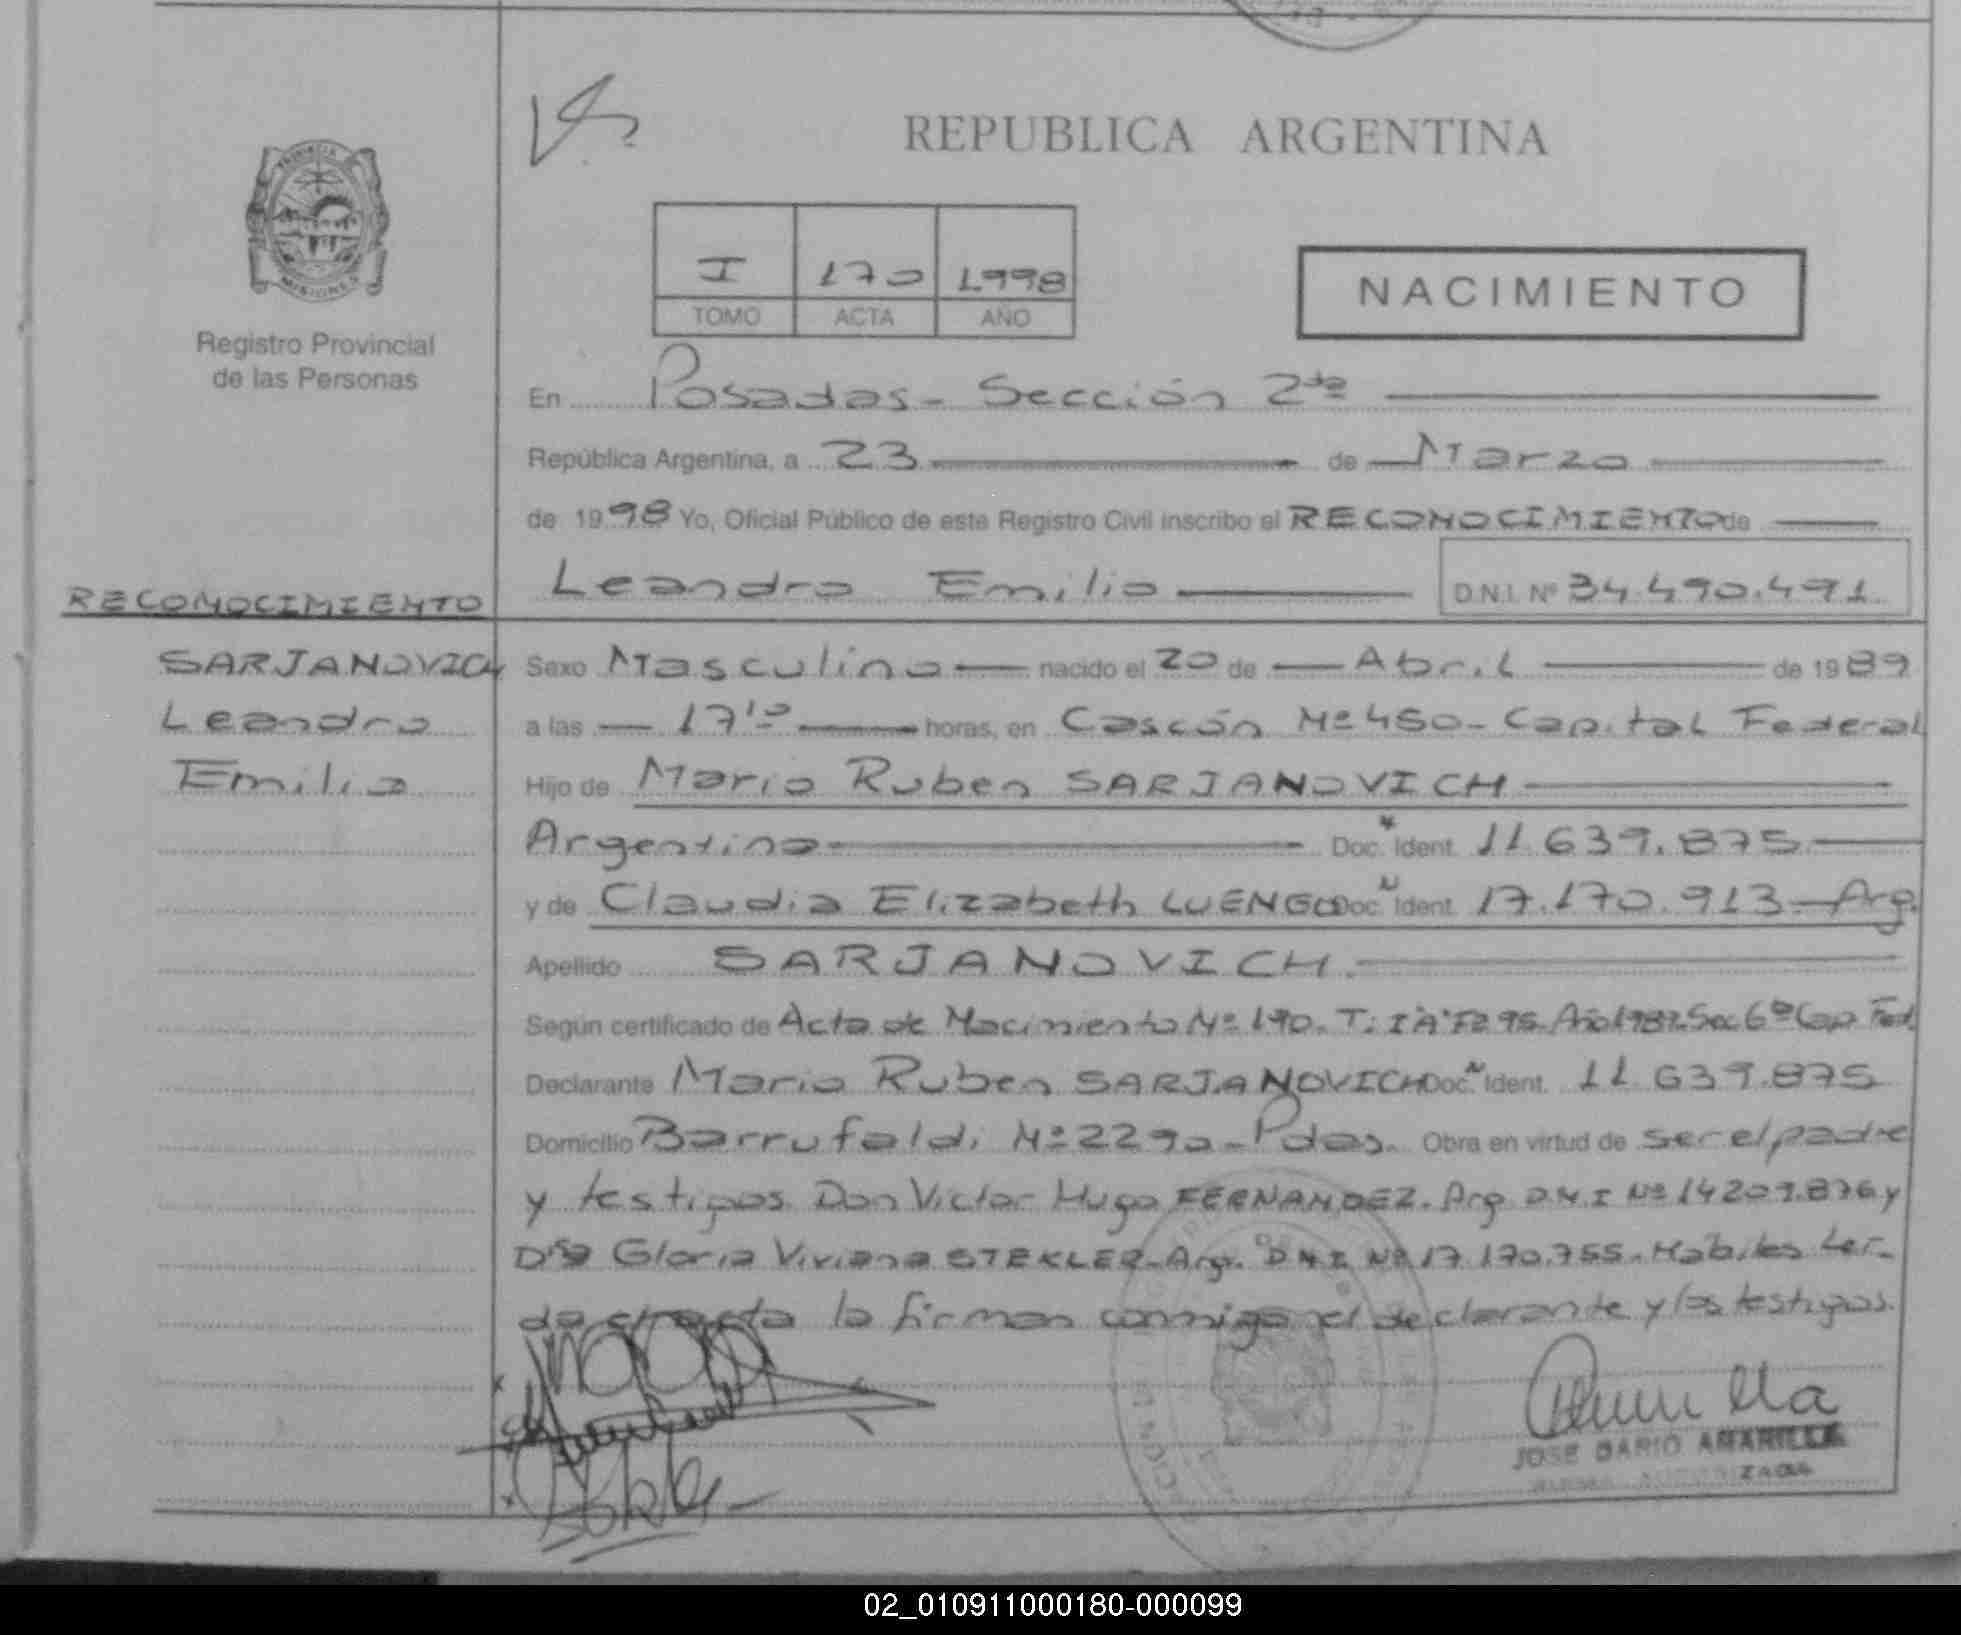 REPUBLICA ARGENTINA
PROVINCIA
MISIONES
Registro Provincial
de las Personas
I 170 1.998
TOMO ACTA AÑO
NACIMIENTO
En Posadas - Sección 2da
República Argentina, a 23 de Marzo
de 1998 Yo, Oficial Público de este Registro Civil inscribo el RECONOCIMIENTO de
Leandro Emilio D.N.I. Nº 34.490.491
RECONOCIMIENTO
SARJANOVICH
Leandro
Emilio
Sexo Masculino nacido el 20 de Abril de 1989
a las 17 10 horas, en Cascón Nº 450 - Capital Federal
Hijo de Mario Ruben SARJANOVICH
Argentino Doc. Ident. 11.639.875
y de Claudia Elizabeth LUENGO Doc. Ident. 17.170.913 - Arg.
Apellido SARJANOVICH
Según certificado de Acta de Nacimiento Nº 190. T: 1ºA Fº 95. Año 1989. Sec 6º Cap. Fed.
Declarante Mario Ruben SARJANOVICH Doc. Ident. 11.639.875
Domicilio Barrufaldi Nº 2290 - Pdas. Obra en virtud de ser el padre
y testigos Don Victor Hugo FERNANDEZ. Arg. D.N.I Nº 14.209.876 y
Dña Gloria Viviana STEKLER - Arg. D.N.I Nº 17.170.755. Habiles Lei-
da el acta la firman conmigo el declarante y los testigos.
JOSE DARIO AMARILLA
02_010911000180-000099